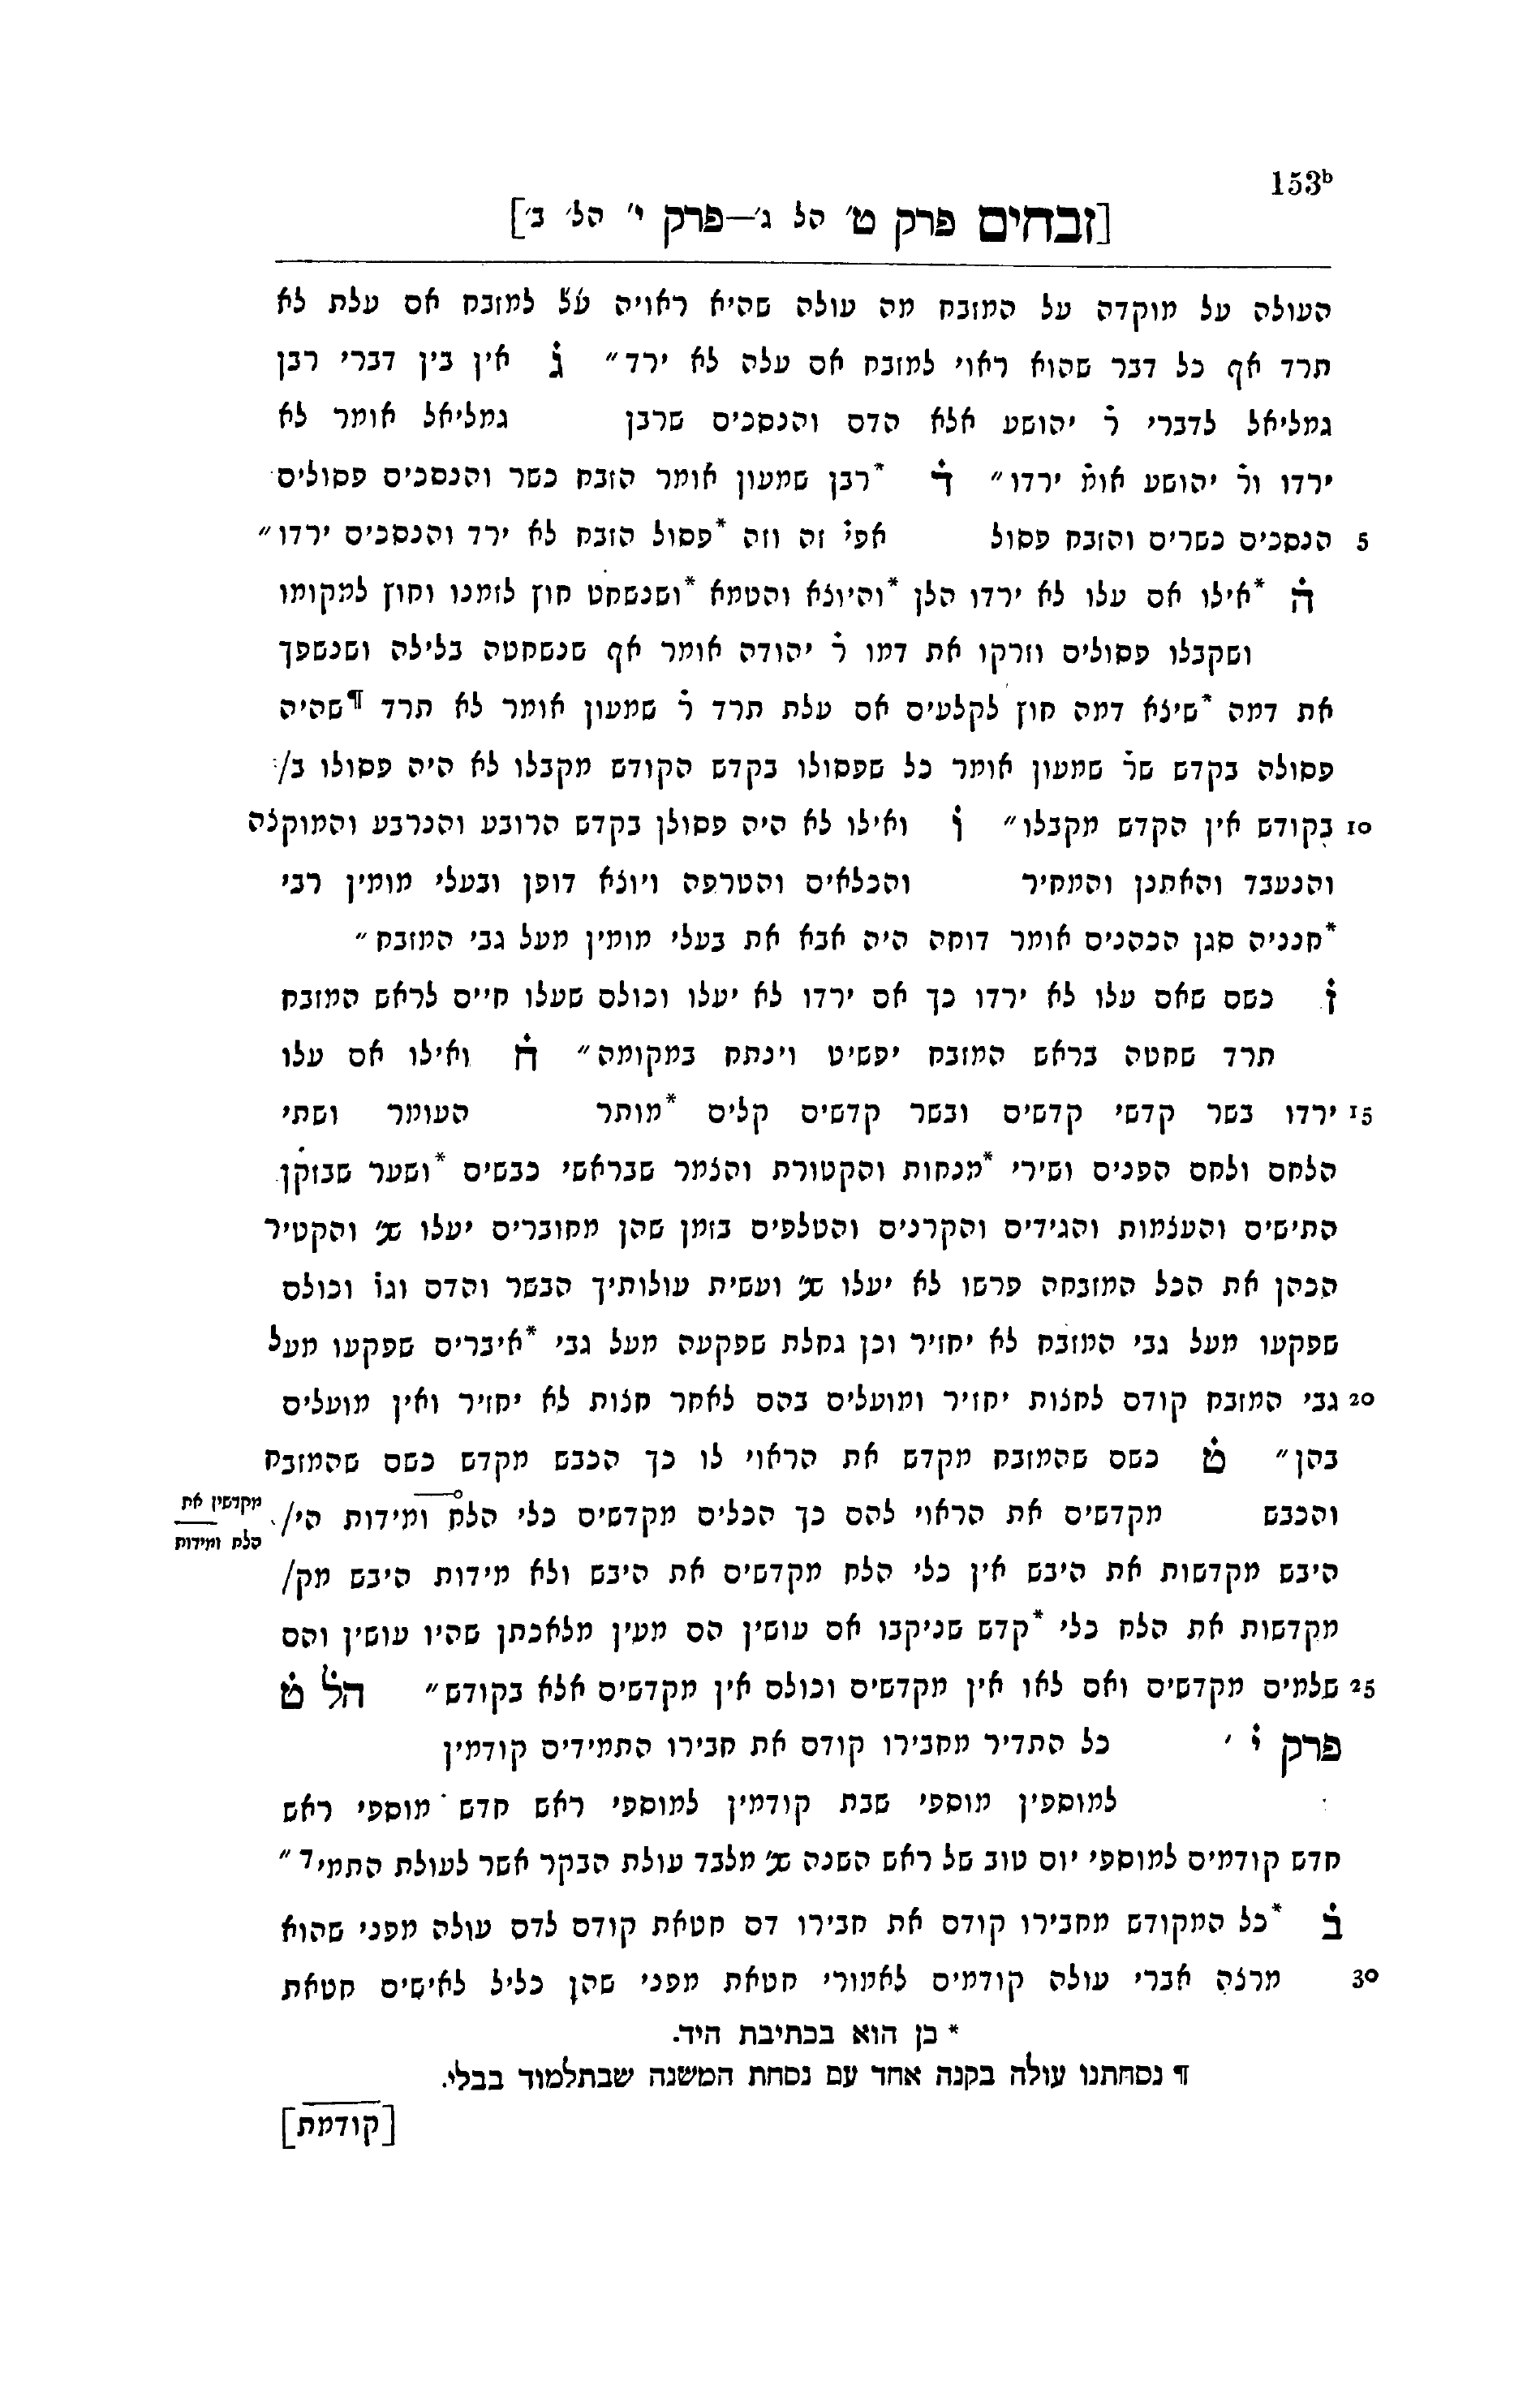 153b
[זבחים פרק ט׳ הל ג׳—פרק י׳ הל׳ ב׳]
העולה על מוקדה על המזבח מה עולה שהיא ראויה על למזבח אם עלת לא
תרד אף כל דבר שהוא ראוי למזבח אם עלה לא ירד״ ג אין בין דברי רבן
גמליאל לדברי ר׳ יהושע אלא הדם והנסכים שרבן גמליאל אומר לא
ירדו ור׳ יהושע אומ׳ ירדו״ ד *רבן שמעון אומר הזבח כשר והנסכים פסולים
5 הנסכים כשרים והזבח פסול אפי׳ זה וזה *פסול הזבח לא ירד והנסכים ירדו״
ה *אילו אם עלו לא ירדו הלן *והיוצא והטמא *ושנשחט חוץ לזמנו וחוץ למקומו
ושקבלו פסולים וזרקו את דמו ר׳ יהודה אומר אף שנשחטה בלילה ושנשפך
את דמה *שיצא דמה חוץ לקלעים אם עלת תרד ר׳ שמעון אומר לא תרד ¶שהיה
פסולה בקדש שר׳ שמעון אומר כל שפסולו בקדש הקודש מקבלו לא היה פסולו ב/
10 בקודש אין הקדש מקבלו״ ו ואילו לא היה פסולן בקדש הרובע והנרבע והמוקצה
והנעבד והאתנן והמחיר והכלאים והטרפה ויוצא דופן ובעלי מומין רבי
*חנניה סגן הכהנים אומר דוחה היה אבא את בעלי מומין מעל גבי המזבח״
ז כשם שאם עלו לא ירדו כך אם ירדו לא יעלו וכולם שעלו חיים לראש המזבח
תרד שחטה בראש המזבח יפשיט וינתח במקומה״ ח ואילו אם עלו
15 ירדו בשר קדשי קדשים ובשר קדשים קלים *מותר העומר ושתי
הלחם ולחם הפנים ושירי *מנחות והקטורת והצמר שבראשי כבשים *ושער שבזקן
התישים והעצמות והגידים והקרנים והטלפים בזמן שהן מחוברים יעלו שנ׳ והקטיר
הכהן את הכל המזבחה פרשו לא יעלו שנ׳ ועשית עולותיך הבשר והדם וגו׳ וכולם
שפקעו מעל גבי המזבח לא יחזיר וכן גחלת שפקעה מעל גבי *איברים שפקעו מעל
20 גבי המזבח קודם לחצות יחזיר ומועלים בהם לאחר חצות לא יחזיר ואין מועלים
בהן״ ט כשם שהמזבח מקדש את הראוי לו כך הכבש מקדש כשם שהמזבח
והכבש מקדשים את הראוי להם כך הכלים מקדשים כלי הלח ומידות הי/
מקדשין את
הלח ומידות
היבש מקדשות את היבש אין כלי הלח מקדשים את היבש ולא מידות היבש מק/
מקדשות את הלח כלי *קדש שניקבו אם עושין הם מעין מלאכתן שהיו עושין והם
25 שלמים מקדשים ואם לאו אין מקדשים וכולם אין מקדשים אלא בקודש״ הל ט
פרק י׳ כל התדיר מחבירו קודם את חבירו התמידים קודמין
למוספין מוספי שבת קודמין למוספי ראש חדש מוספי ראש
חדש קודמים למוספי יום טוב של ראש השנה שנ׳ מלבד עולת הבקר אשר לעולת התמיד״
ב *כל המקודש מחבירו קודם את חבירו דם חטאת קודם לדם עולה מפני שהוא
30 מרצה אברי עולה קודמים לאמורי חטאת מפני שהן כליל לאישים חטאת
* כן הוא בכתיבת היד.
¶ נסחתנו עולה בקנה אחד עם נסחת המשנה שבתלמוד בבלי.
[קודמת]